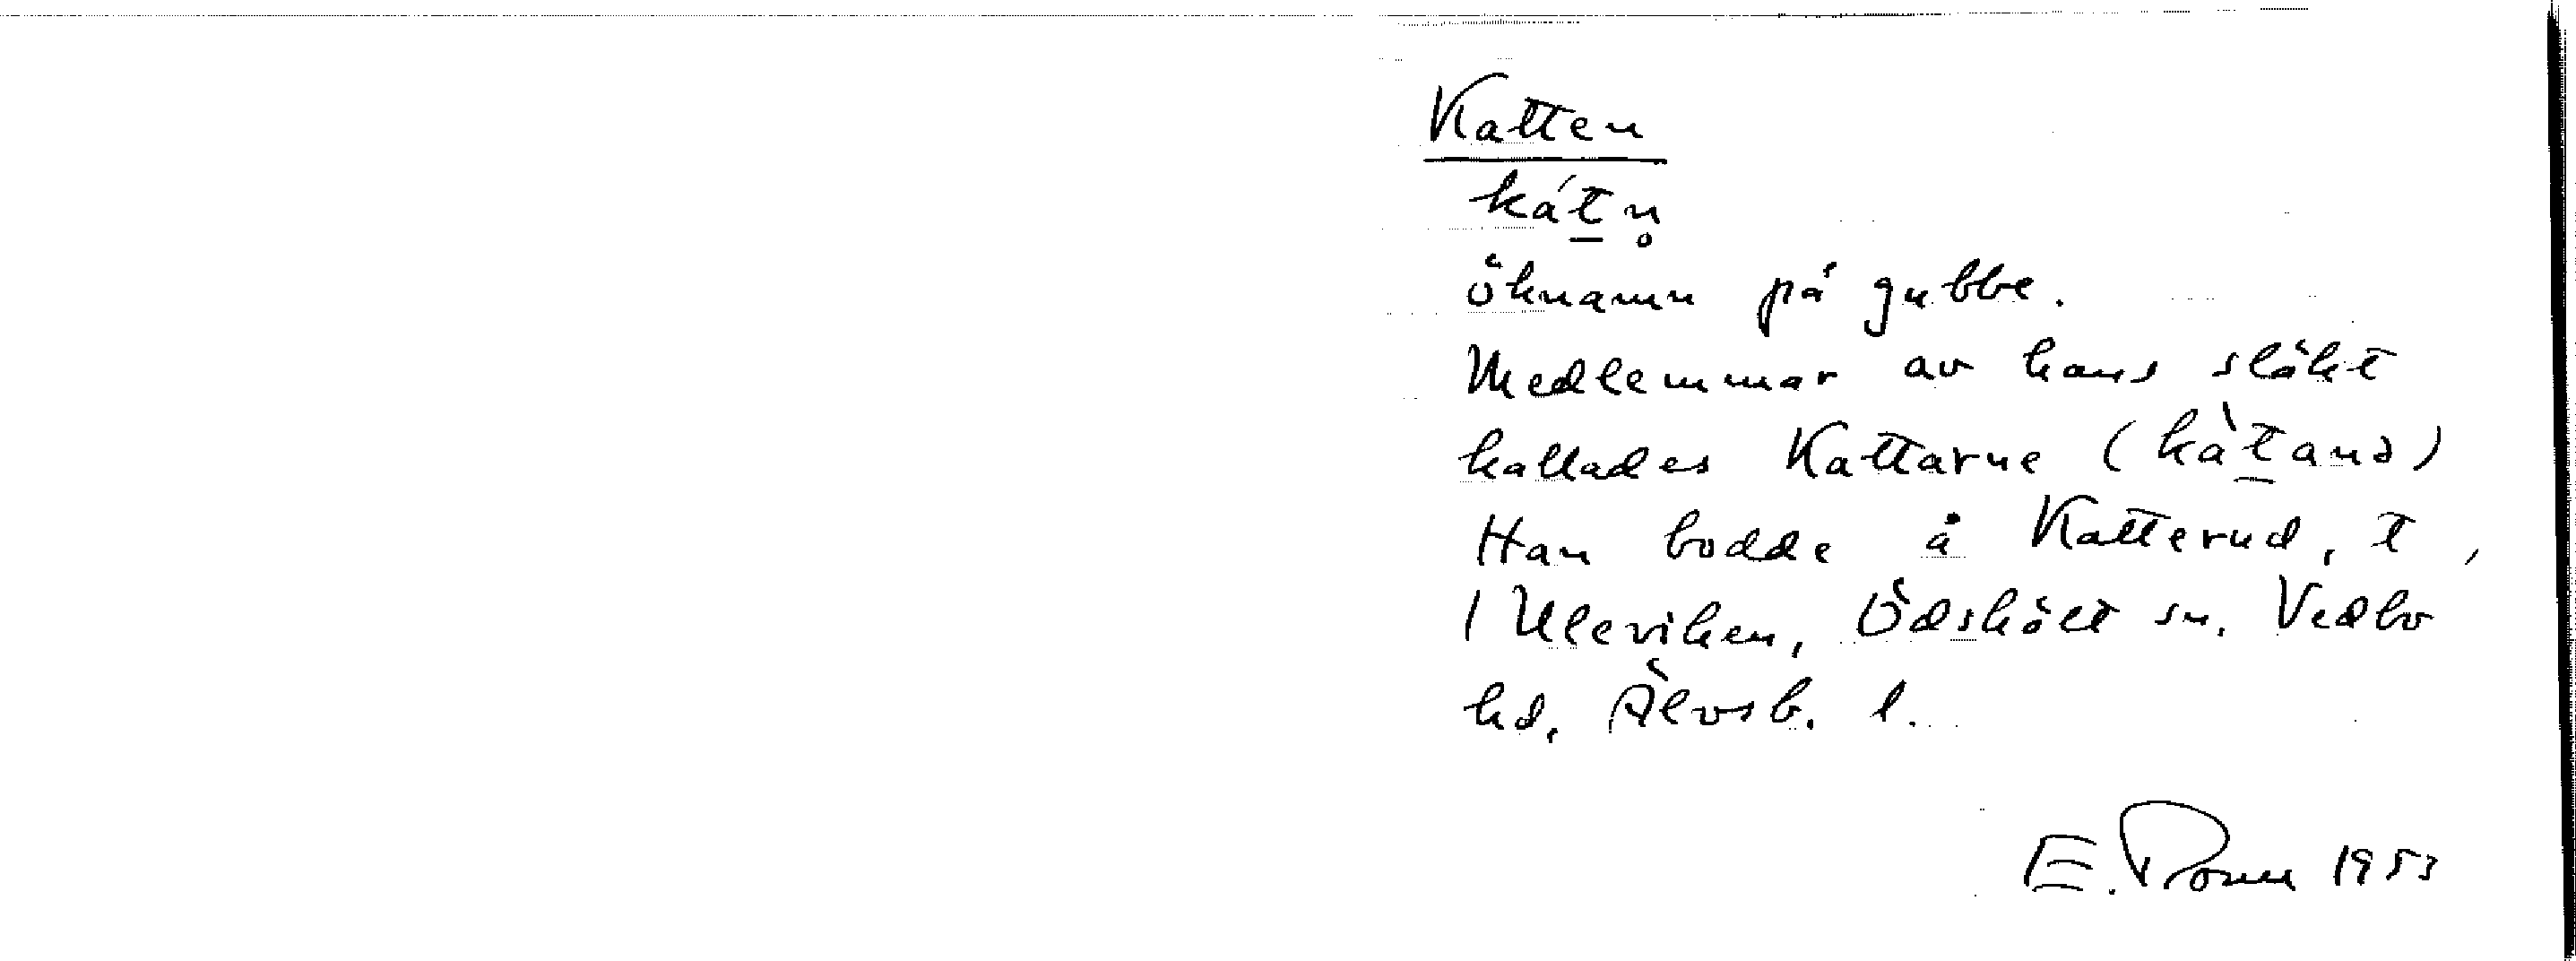 Katten
ká́t̲n̥
öknamn på gubbe.
Medlemmar av hans släkt
kallades Kattarne (kàt̲anə)
Han bodde å Katterud, t,
/ Uleviken, Ödskölt sn. Vedbo
hd, Älvsb. l.
E. 1953